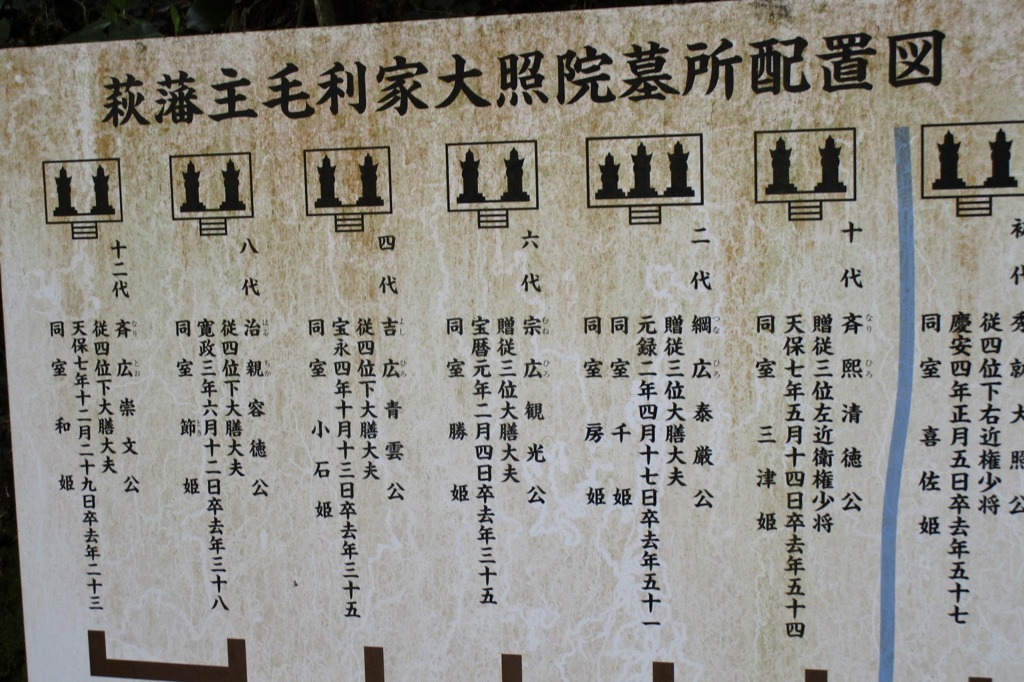 萩藩主毛利家大照院墓所配置図
初代 秀就大照公
従四位下右近権少将
慶安四年正月五日卒去年五十七
同室 喜佐姫
十代 斉熙清徳公
なり ひろ
贈従三位左近衛権少将
天保七年五月十四日卒去年五十四
同室 三津姫
二代 綱広泰厳公
つな ひろ
贈従三位大膳大夫
元録二年四月十七日卒去年五十一
同室 千姫
同室 房姫
六代 宗広観光公
むね ひろ
贈従三位大膳大夫
宝暦元年二月四日卒去年三十五
同室 勝姫
四代 吉広青雲公
よし ひろ
従四位下大膳大夫
宝永四年十月十三日卒去年三十五
同室 小石姫
八代 治親容徳公
はる ちか
従四位下大膳大夫
寛政三年六月十二日卒去年三十八
同室 節姫
十二代 斉広崇文公
なり とお
従四位下大膳大夫
天保七年十二月二十九日卒去年二十三
同室 和姫